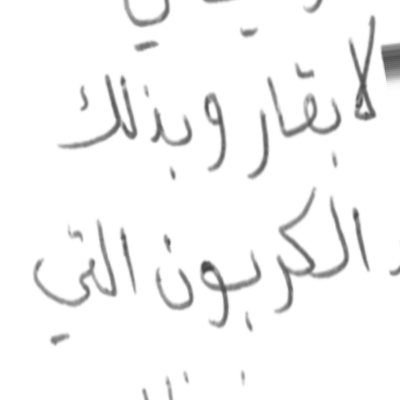 لا بقار وبذلك
الكربون التي